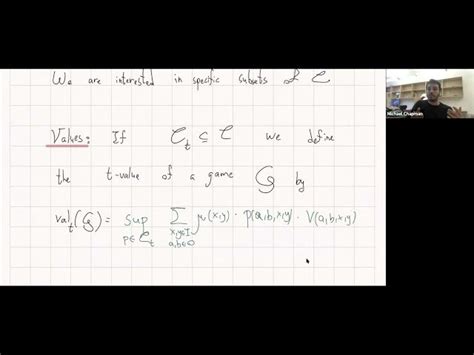 We are interested in specific subsets of C
Values: If C_t ⊆ C we define
the t-value of a game G by
val_t(G) = sup_{p∈C_t} Σ_{x,y∈I a,b∈O} μ(x,y) · p(a,b,x,y) · V(a,b,x,y)
Michael Chapman